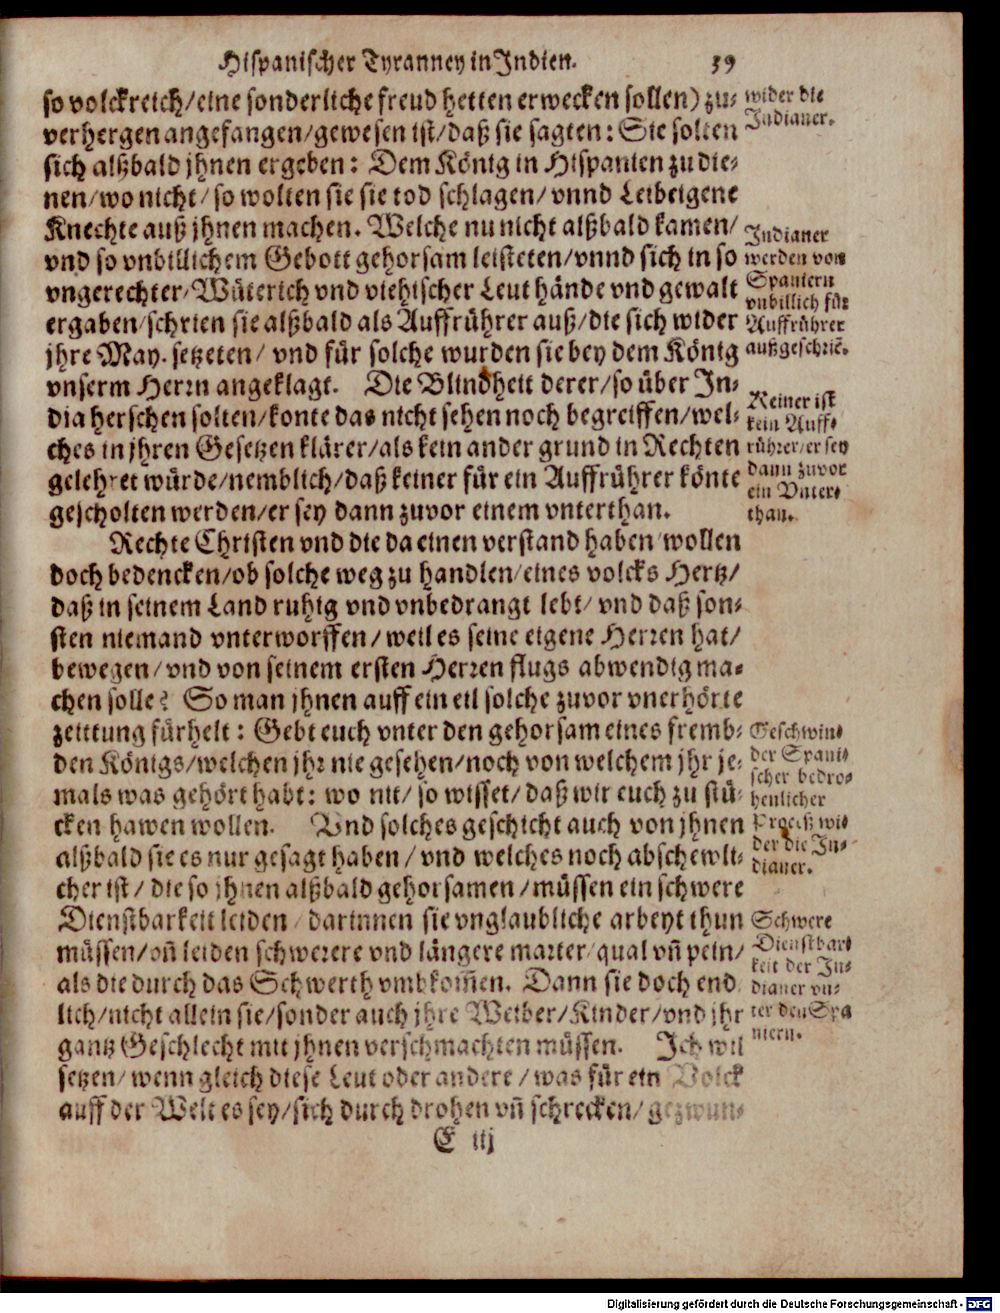 Hispanischer Tyranney in Indien. 39
so volckreich/eine sonderliche freud hetten erwecken sollen) zu-
verhergen angefangen/gewesen ist/daß sie sagten: Sie solten
sich alßbald jhnen ergeben: Dem König in Hispanien zu die-
nen/wo nicht/so wolten sie sie tod schlagen/vnnd Leibeigene
Knechte auß jhnen machen. Welche nu nicht alßbald kamen/
vnd so vnbillichem Gebott gehorsam leisteten/vnnd sich in so
vngerechter/Wüterich vnd viehischer Leut hände vnd gewalt
ergaben/schrien sie alßbald als Auffrührer auß/die sich wider
jhre May. setzeten/ vnd für solche wurden sie bey dem König
vnserm Herrn angeklagt. Die Blindheit derer/so über In-
dia herschen solten/konte das nicht sehen noch begreiffen/wel-
ches in jhren Gesetzen klärer/als kein ander grund in Rechten
gelehret würde/nemblich/daß keiner für ein Auffrührer könte
gescholten werden/er sey dann zuvor einem vnterthan.
Rechte Christen vnd die da einen verstand haben/wollen
doch bedencken/ob solche weg zu handlen/eines volcks Hertz/
daß in seinem Land ruhig vnd vnbedrangt lebt/ vnd daß son-
sten niemand vnterworffen/weil es seine eigene Herren hat/
bewegen/vnd von seinem ersten Herren flugs abwendig ma-
chen solle? So man jhnen auff ein eil solche zuvor vnerhörte
zeittung fürhelt: Gebt euch vnter den gehorsam eines fremb-
den Königs/welchen jhr nie gesehen/noch von welchem jhr je-
mals was gehört habt: wo nit/ so wisset/daß wir euch zu stü-
cken hawen wollen. Vnd solches geschicht auch von jhnen
alßbald sie es nur gesagt haben/ vnd welches noch abschewli-
cher ist/ die so jhnen alßbald gehorsamen/müssen ein schwere
Dienstbarkeit leiden/ darinnen sie vnglaubliche arbeyt thun
müssen/vñ leiden schwerere vnd längere marter/qual vñ pein/
als die durch das Schwerth vmbkom̃en. Dann sie doch end
lich/nicht allein sie/sonder auch jhre Weiber/Kinder/vnd jhr
gantz Geschlecht mit jhnen verschmachten müssen. Ich wil
setzen/wenn gleich diese Leut oder andere/was für ein Volck
auff der Welt es sey/sich durch drohen vñ schrecken/gezwun-
E iij
wider die
Indianer.
Indianer
werden von
Spaniern
vnbillich für
Auffrührer
außgeschriẽ.
Keiner ist
kein Auff-
rührer/er sey
dann zuvor
ein Vnter-
than.
Geschwin-
der Spani-
scher bedro-
henlicher
Proceß wi-
der die In-
dianer.
Schwere
Dienstbar-
keit der In-
dianer vn-
ter den Spa
niern.
Digitalisierung gefördert durch die Deutsche Forschungsgemeinschaft - DFG